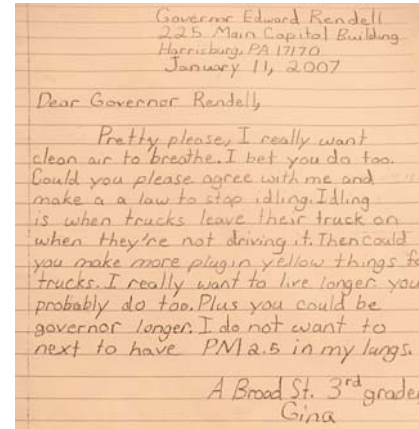 Governor Edward Rendell
225 Main Capitol Building
Harrisburg, PA 17170
January 11, 2007
Dear Governor Rendell,
Pretty please, I really want
clean air to breathe. I bet you do too.
Could you please agree with me and
make a a law to stop idling. Idling
is when trucks leave their truck on
when they're not driving it. Then could
you make more plugin yellow things fo
trucks. I really want to live longer you
probably do too. Plus you could be
governor longer. I do not want to
next to have PM 2.5 in my lungs.
A Broad St. 3rd grader
Gina